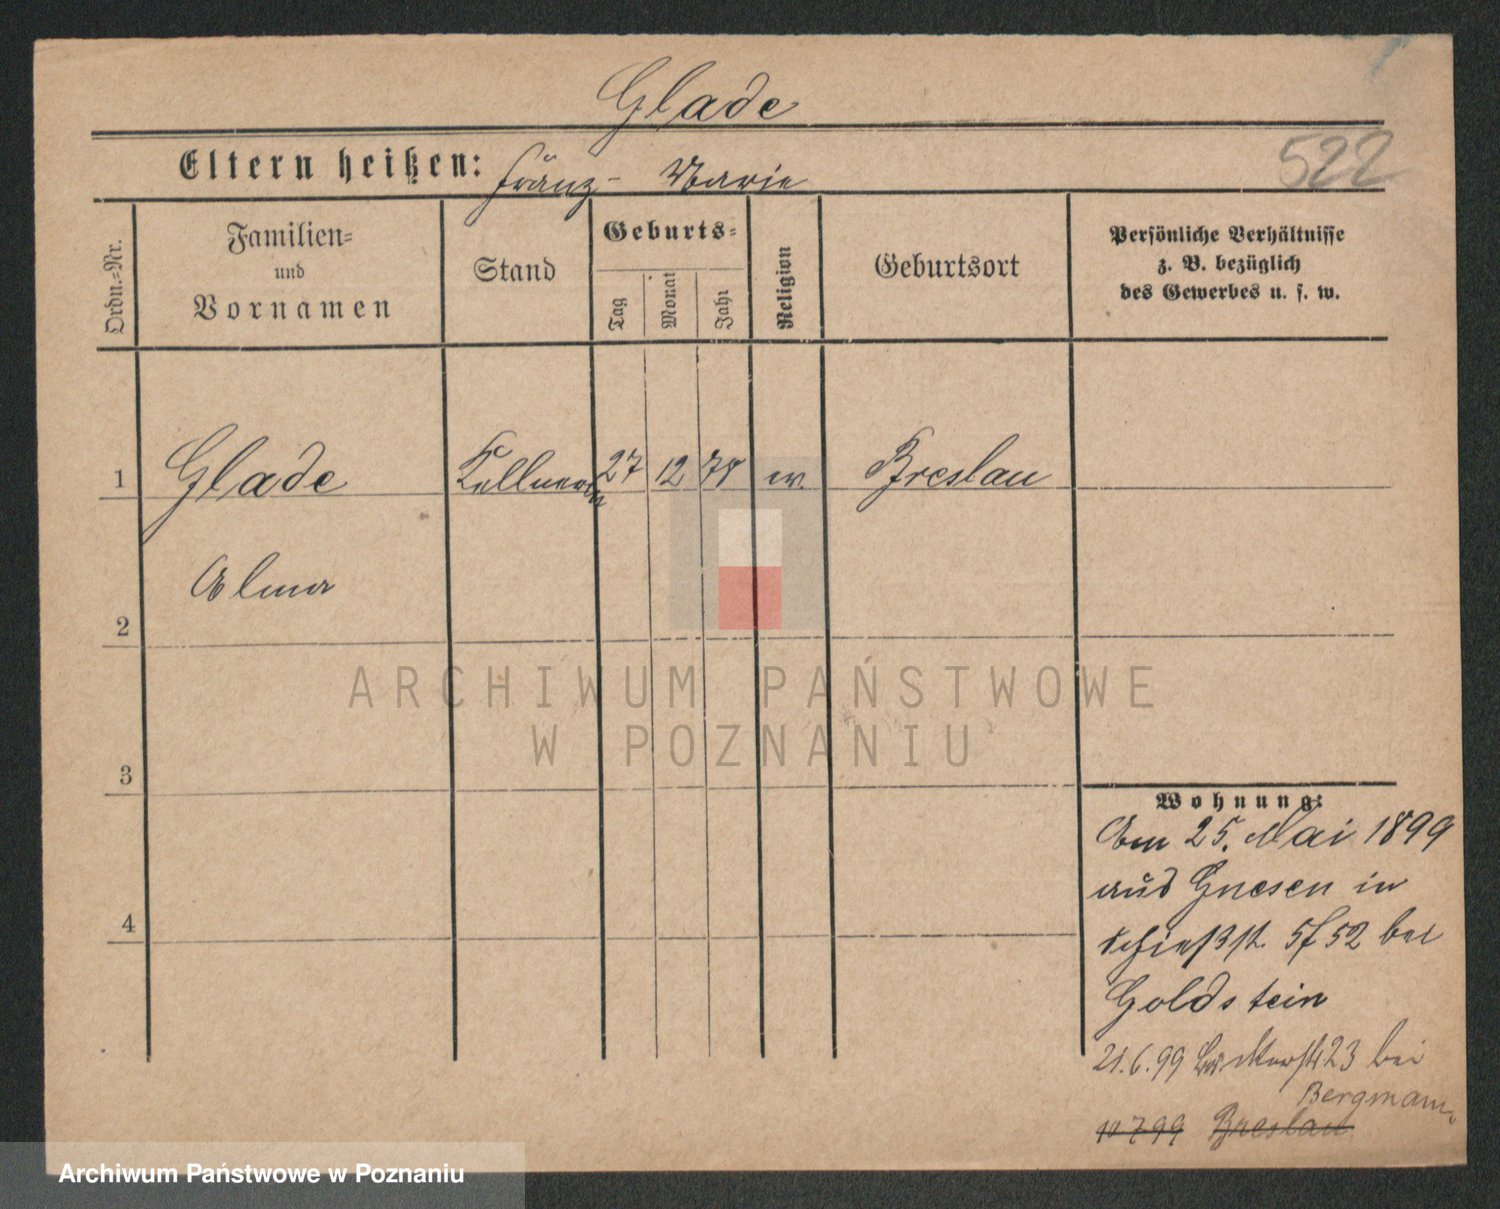 Glade
Eltern heißen: Franz - Marie
522
Ordn.=Nr.
Familien=
und
Vornamen
Stand
Geburts=
Tag
Monat
Jahr
Religion
Geburtsort
Persönliche Verhältnisse
z. B. bezüglich
des Gewerbes u. s. w.
1 Glade Kellnerin 27 12 78 ev. Breslau
Alma
2
3
4
ARCHIWUM PAŃSTWOWE
W POZNANIU
Wohnung:
Am 25. Mai 1899
aus Gnesen in
Schießst. 52 bei
Goldstein
21.6.99 23 bei
Bergmann
10 7 99 Breslau
Archiwum Państwowe w Poznaniu